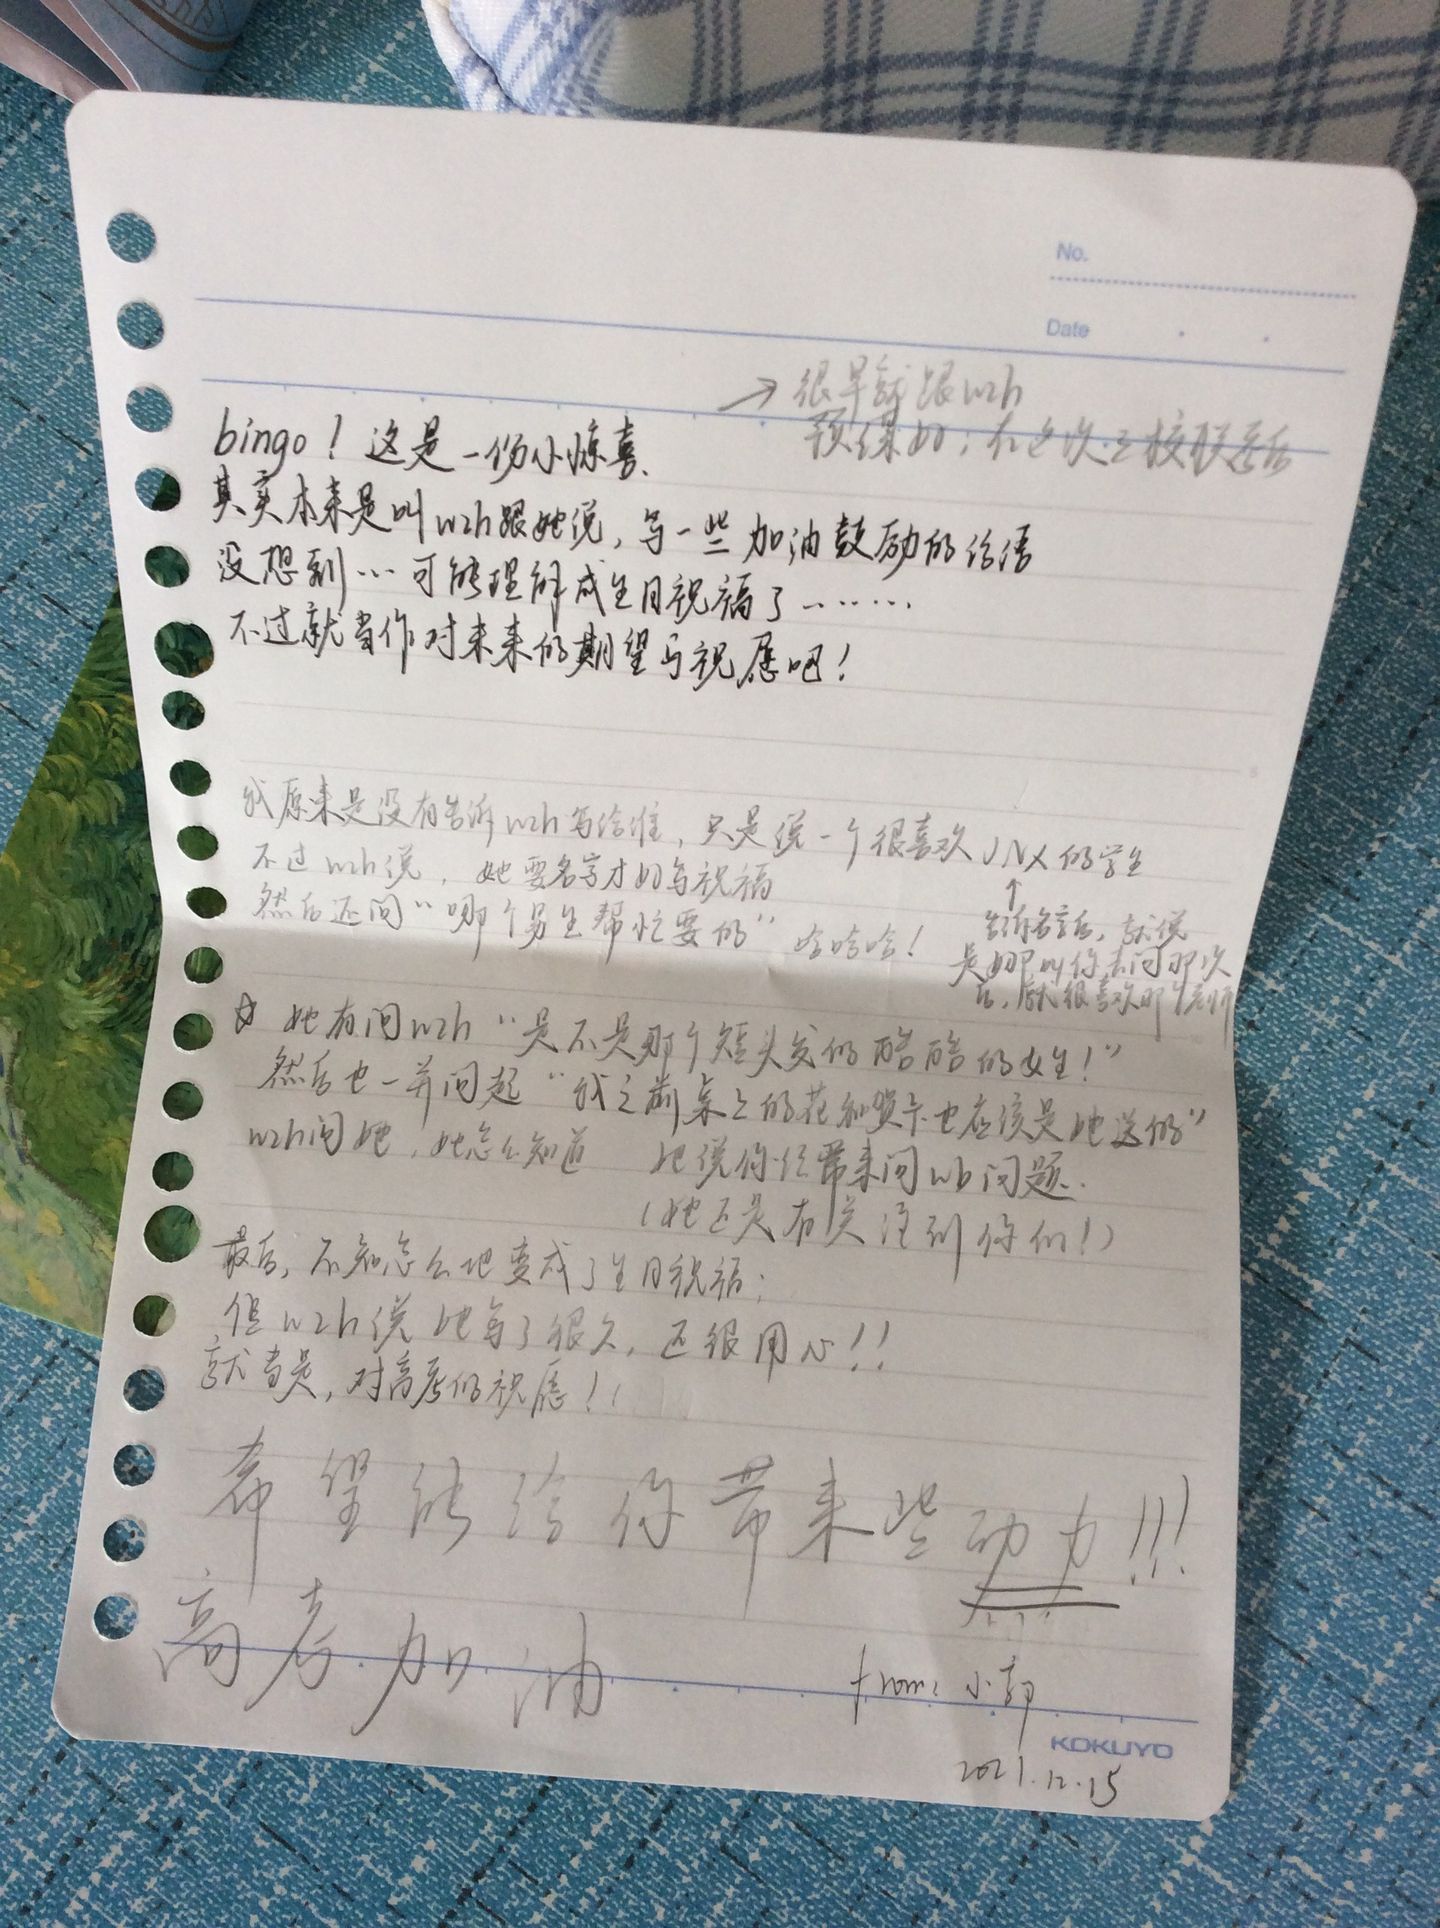 No.
Date
→ 很早就跟wzh
预谋好,在这次三校联考后
bingo!这是一份小惊喜、
其实本来是叫wzh跟她说,写一些加油鼓励的话语
没想到…可能理解成生日祝福了………
不过就当作对未来的期望与祝愿吧!
我原来是没有告诉wzh写给谁,只是说一个很喜欢JNX的学生
不过wzh说,她要名字才好写祝福
然后还问“哪个男生帮忙要的”哈哈哈!
↑
告诉名字后,就说
是 叫你去问那次
后,就很喜欢那个老师
☆ 她有问wzh“是不是那个短头发的酷酷的女生!”
然后也一并问起“我之前桌上的花和贺卡也应该是她送的”
wzh问她,她怎么知道 她说你经常来问wb问题.
(她还是有关注到你们!)
最后,不知怎么地变成了生日祝福;
但wzh说她写了很久,还很用心!!
就当是,对高考的祝愿!!
希望能给你带来些动力!!!
高考加油
from:小郭
KOKUYO
2021.12.15